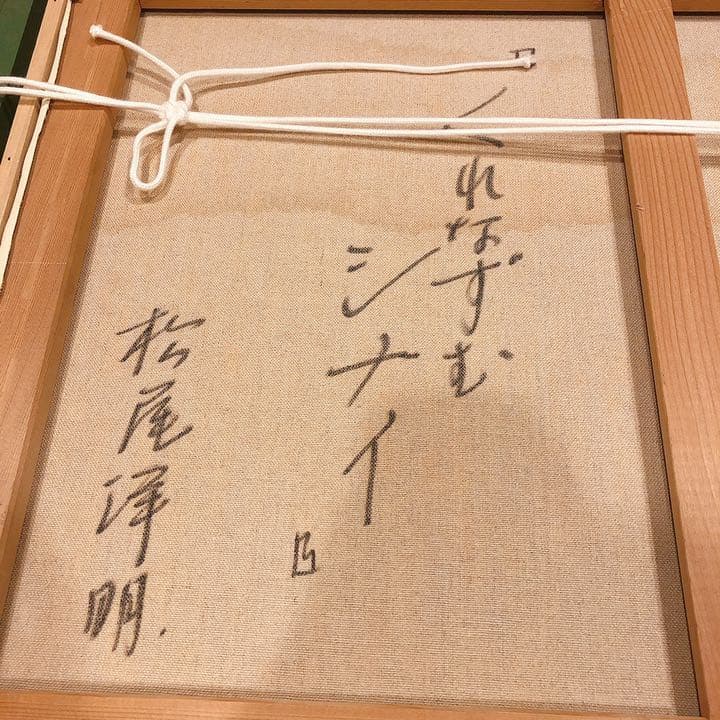 「くれなずむ
シナイ」
松尾洋明.